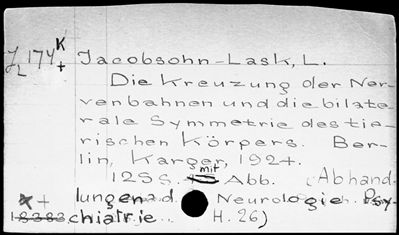 J 174 K
L +
Jacobsohn-Lask, L.
Die Kreuzung der Ner-
venbahnen und die bilate-
rale Symmetrie des tie-
rischen Körpers. Ber-
lin, Karger, 1924.
125 S. mit Abb. (Abhand.
lungen a.d. Neurologie Psy-
chiatrie... H. 26)
18383